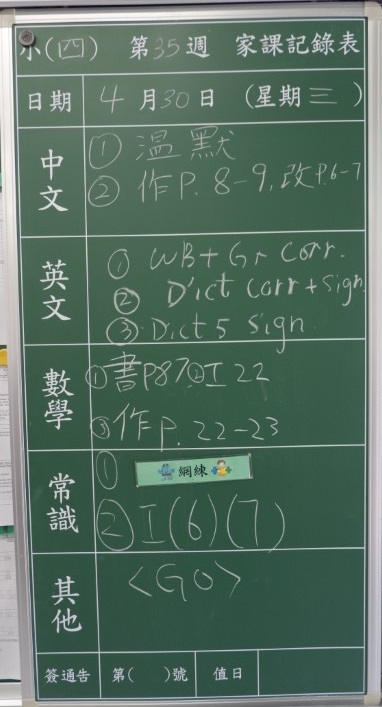 小(四) 第35週 家課記錄表
日期 4月30日 (星期三)
中文
① 溫默
② 作P. 8-9, 改P.6-7
英文
① WB + Gr Corr.
② Dict Corr + Sign
③ Dict 5 Sign
數學
① 書P87 ② I 22
③ 作P. 22-23
常識
① 網練
② I(6)(7)
其他
<GO>
簽通告 第( )號 值日